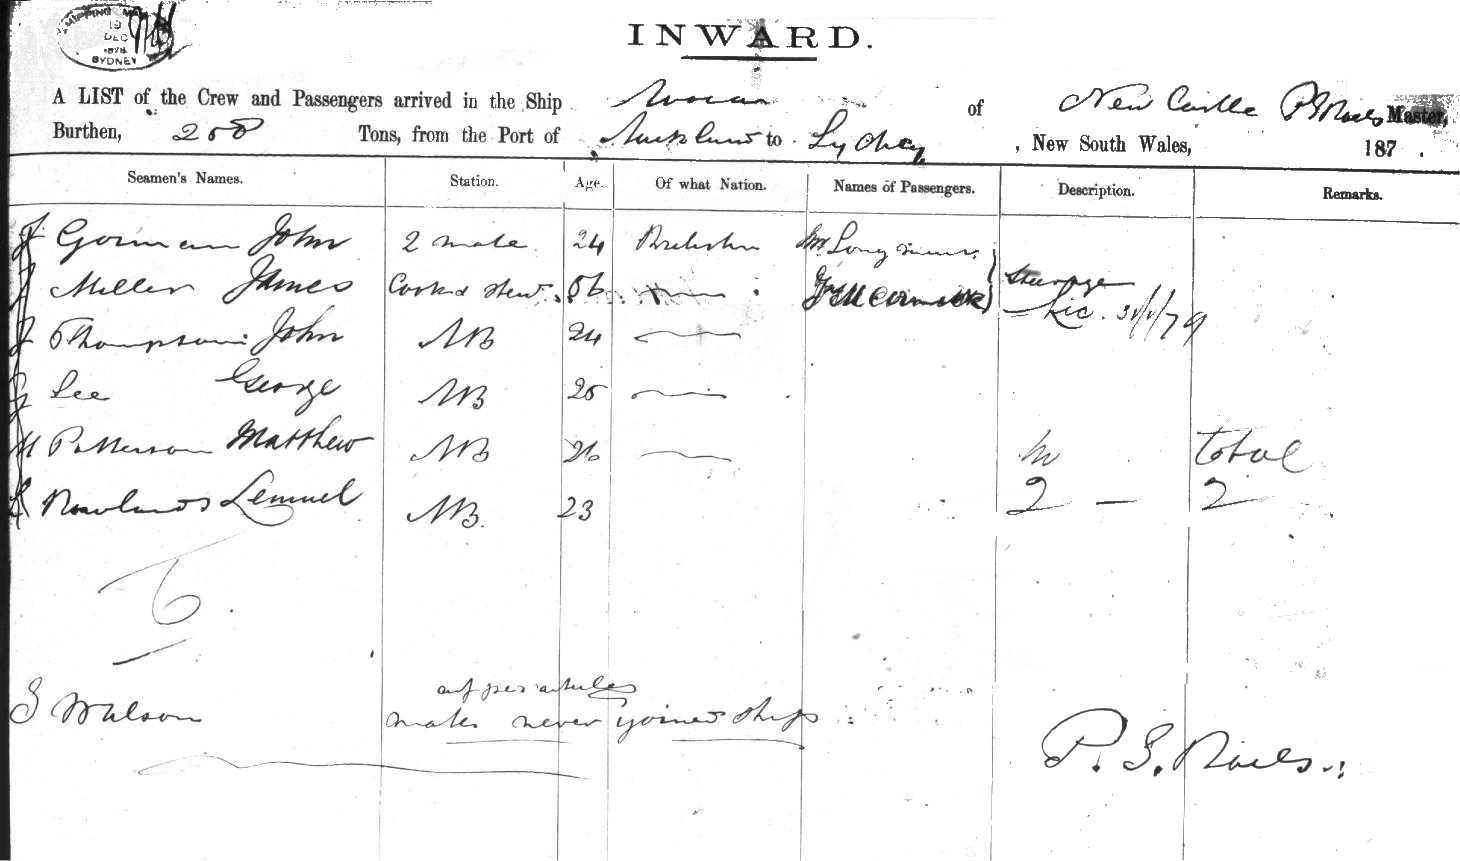 SHIPPING MA
19
DEC
1878
SYDNEY
INWARD.
A LIST of the Crew and Passengers arrived in the Ship Avoca of New Castle P S Niels Master,
Burthen, 200 Tons, from the Port of Auckland to Sydney, New South Wales, 187 .
Seamen's Names. Station. Age. Of what Nation. Names of Passengers. Description. Remarks.
J Gorman John 2 mate 24
J Miller James Cook & Stew. 56 McCormack Steerage
J Thompson John AB 24 Lic.
G Lee George AB 25
M Patterson Matthew AB 26 m total
L Rowlands Lemuel AB 23 2 — 2
6
as per articles
S Watson mate never joined ship
P. S. Niels